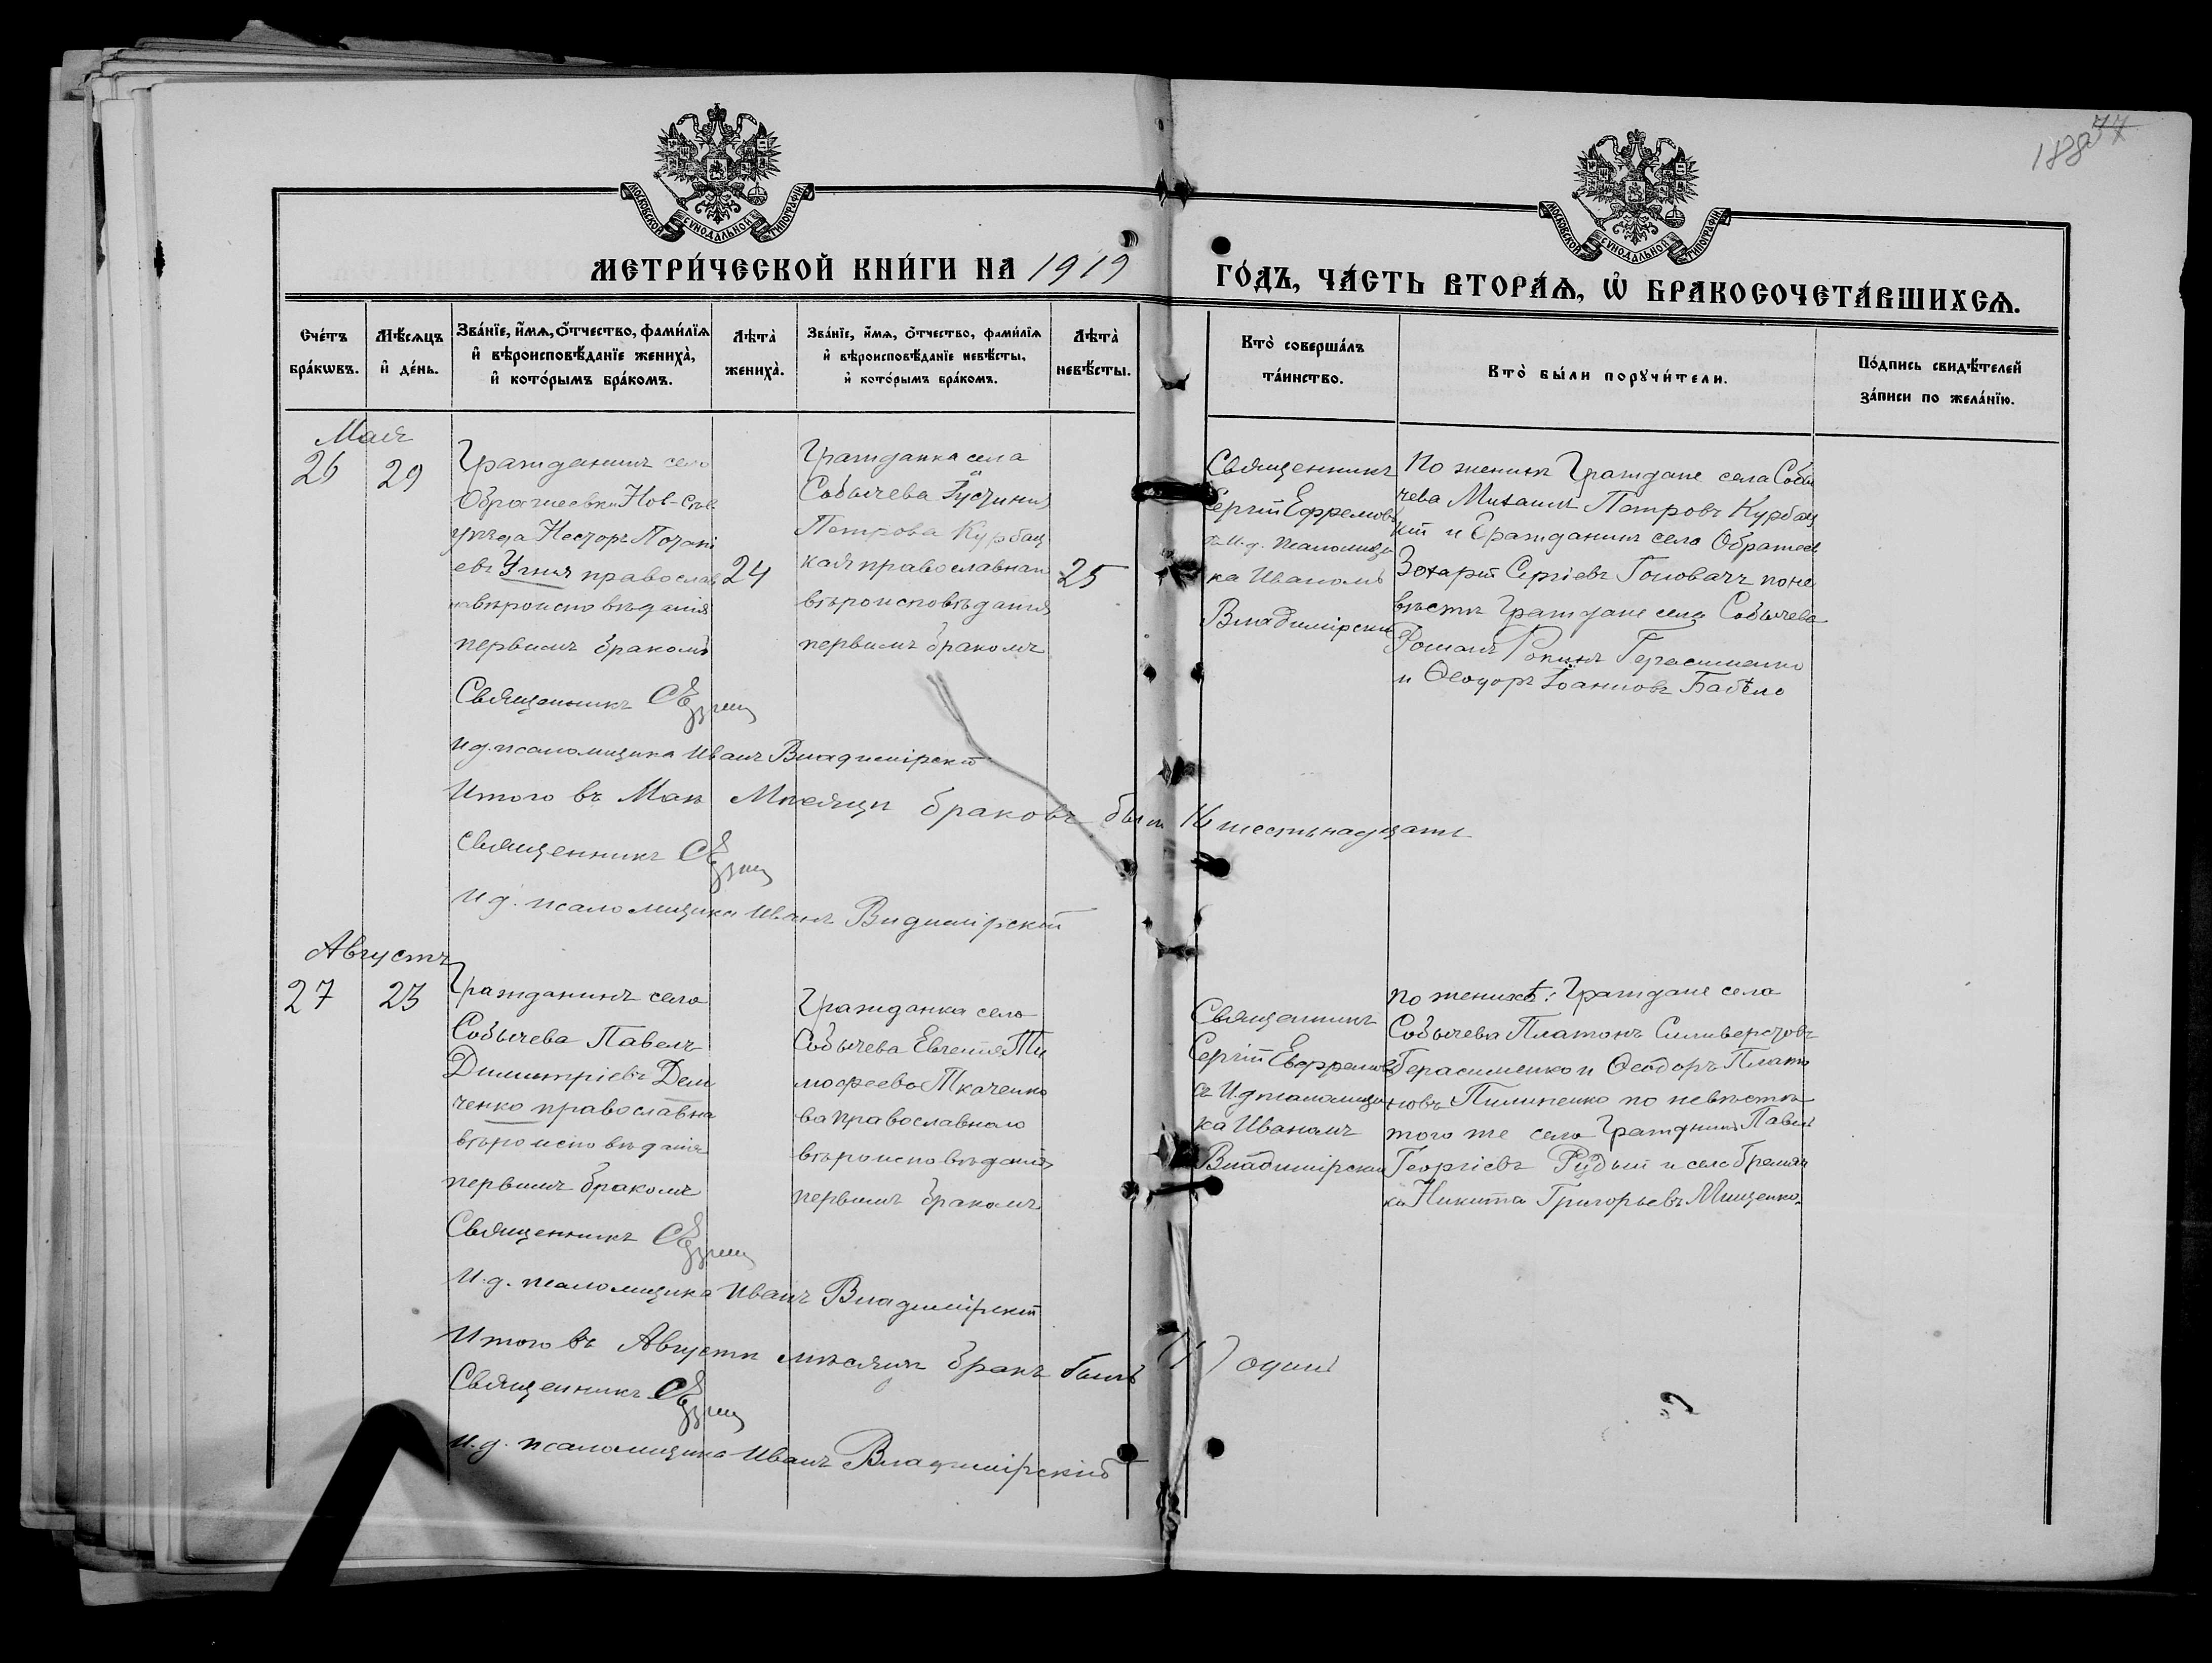 188 37
МОСКОВСКОЙ СѴНОДАЛЬНОЙ ТИПОГРАФІИ
МОСКОВСКОЙ СѴНОДАЛЬНОЙ ТИПОГРАФІИ
МЕТРИ́ЧЕСКОЙ КНИ́ГИ НА 1919
ГО́ДЪ, ЧА́СТЬ ВТОРА́Ѧ, Ѡ҆ БРАКОСОЧЕТА́ВШИХСѦ.
Сче́тъ
бра́кѡвъ.
Мѣ́сѧцъ
и҆ де́нь.
Зва́нїе, и҆́мѧ, ѻ҆́тчество, фами́лїѧ
и҆ вѣроисповѣ́данїе женихà,
и҆ кото́рымъ бра́комъ.
Лѣтà
женихà.
Зва́нїе, и҆́мѧ, ѻ҆́тчество, фами́лїѧ
и҆ вѣроисповѣ́данїе невѣ́сты,
и҆ кото́рымъ бра́комъ.
Лѣтà
невѣ́сты.
Кто̀ соверша́лъ
та́инство.
Кто̀ бы́ли порꙋчи́тели.
По́дпись свидѣ́телей
за́писи по жела́нїю.
Мая
26
29
Гражданинъ село
Ображеевки Нов-Сѣв
уѣзда Несторъ Потапі
евъ православ
вѣроисповѣданія
первымъ бракомъ
24
Гражданка села
Собычева Іустинія
Петрова Курбац
кая православнаго
вѣроисповѣданія
первымъ бракомъ
25
Священникъ
Сергій Ефремовъ
съ И.д. псаломщи
ка Иваномъ
Владимірски
По женихѣ Граждане села Собы
чева Михаилъ Петровъ Курбац
кій и Гражданинъ села Ображеев
Захарій Сергіевъ Головачъ по не
вѣстѣ Граждане села Собычева
Романъ Герасименко
и Ѳеодоръ Іоанновъ
Священникъ
И.д. псаломщика Иванъ Владимірскій
Итого въ Маѣ Мѣсяцѣ браковъ было 16 шестьнадцать
Священникъ
И.д. псаломщика Иванъ Владимірскій
Августъ
27
23
Гражданинъ села
Собычева Павелъ
Димитріевъ Дем
ченко православна
вѣроисповѣданія
первымъ бракомъ
Гражданка села
Собычева Евгенія Ти
мофеева Ткаченко
ва православнаго
вѣроисповѣданія
первымъ бракомъ
Священникъ
Сергій Евфремов
съ И.д псаломщи
ка Иваномъ
Владимірским
по женихѣ: Граждане села
Собычева Платонъ Силиверстовъ
Герасименко и Ѳеодоръ Плато
новъ Пилипенко по невѣстѣ
того же села Гражданинъ Павелъ
Георгіевъ Рудый и села
ка Никита Григорьевъ Мищенко.
Священникъ
И.д. псаломщика Иванъ Владимірскій
Итого въ Августѣ мѣсяцѣ бракъ былъ (1) одинъ
Священникъ
И.д. псаломщика Иванъ Владимірскій